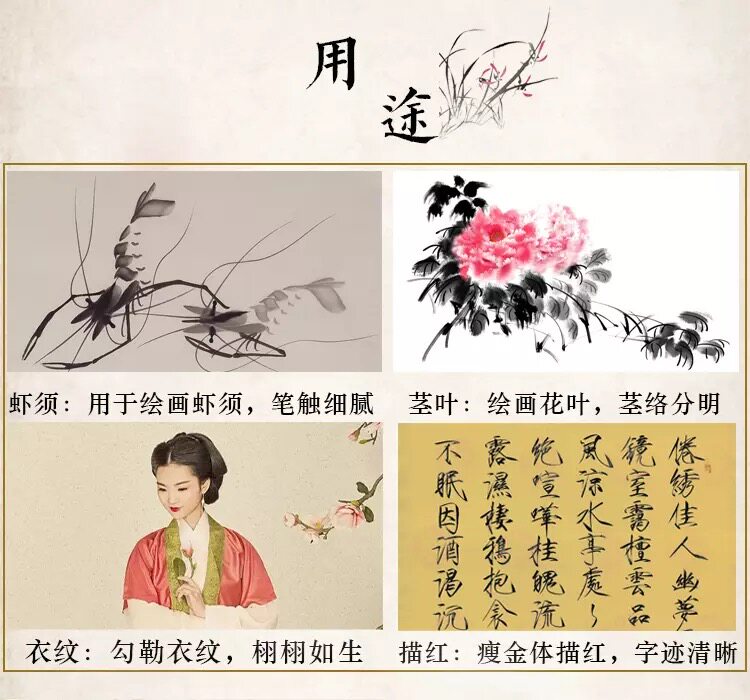 用
途
虾须：用于绘画虾须，笔触细腻
茎叶：绘画花叶，茎络分明
倦綉佳人幽夢
鏡室靄檀雲品
風涼水亭處〻
絶喧嘩桂魄流
露濕棲鴉抱衾
不眠因酒渴沉
衣纹：勾勒衣纹，栩栩如生
描红：瘦金体描红，字迹清晰